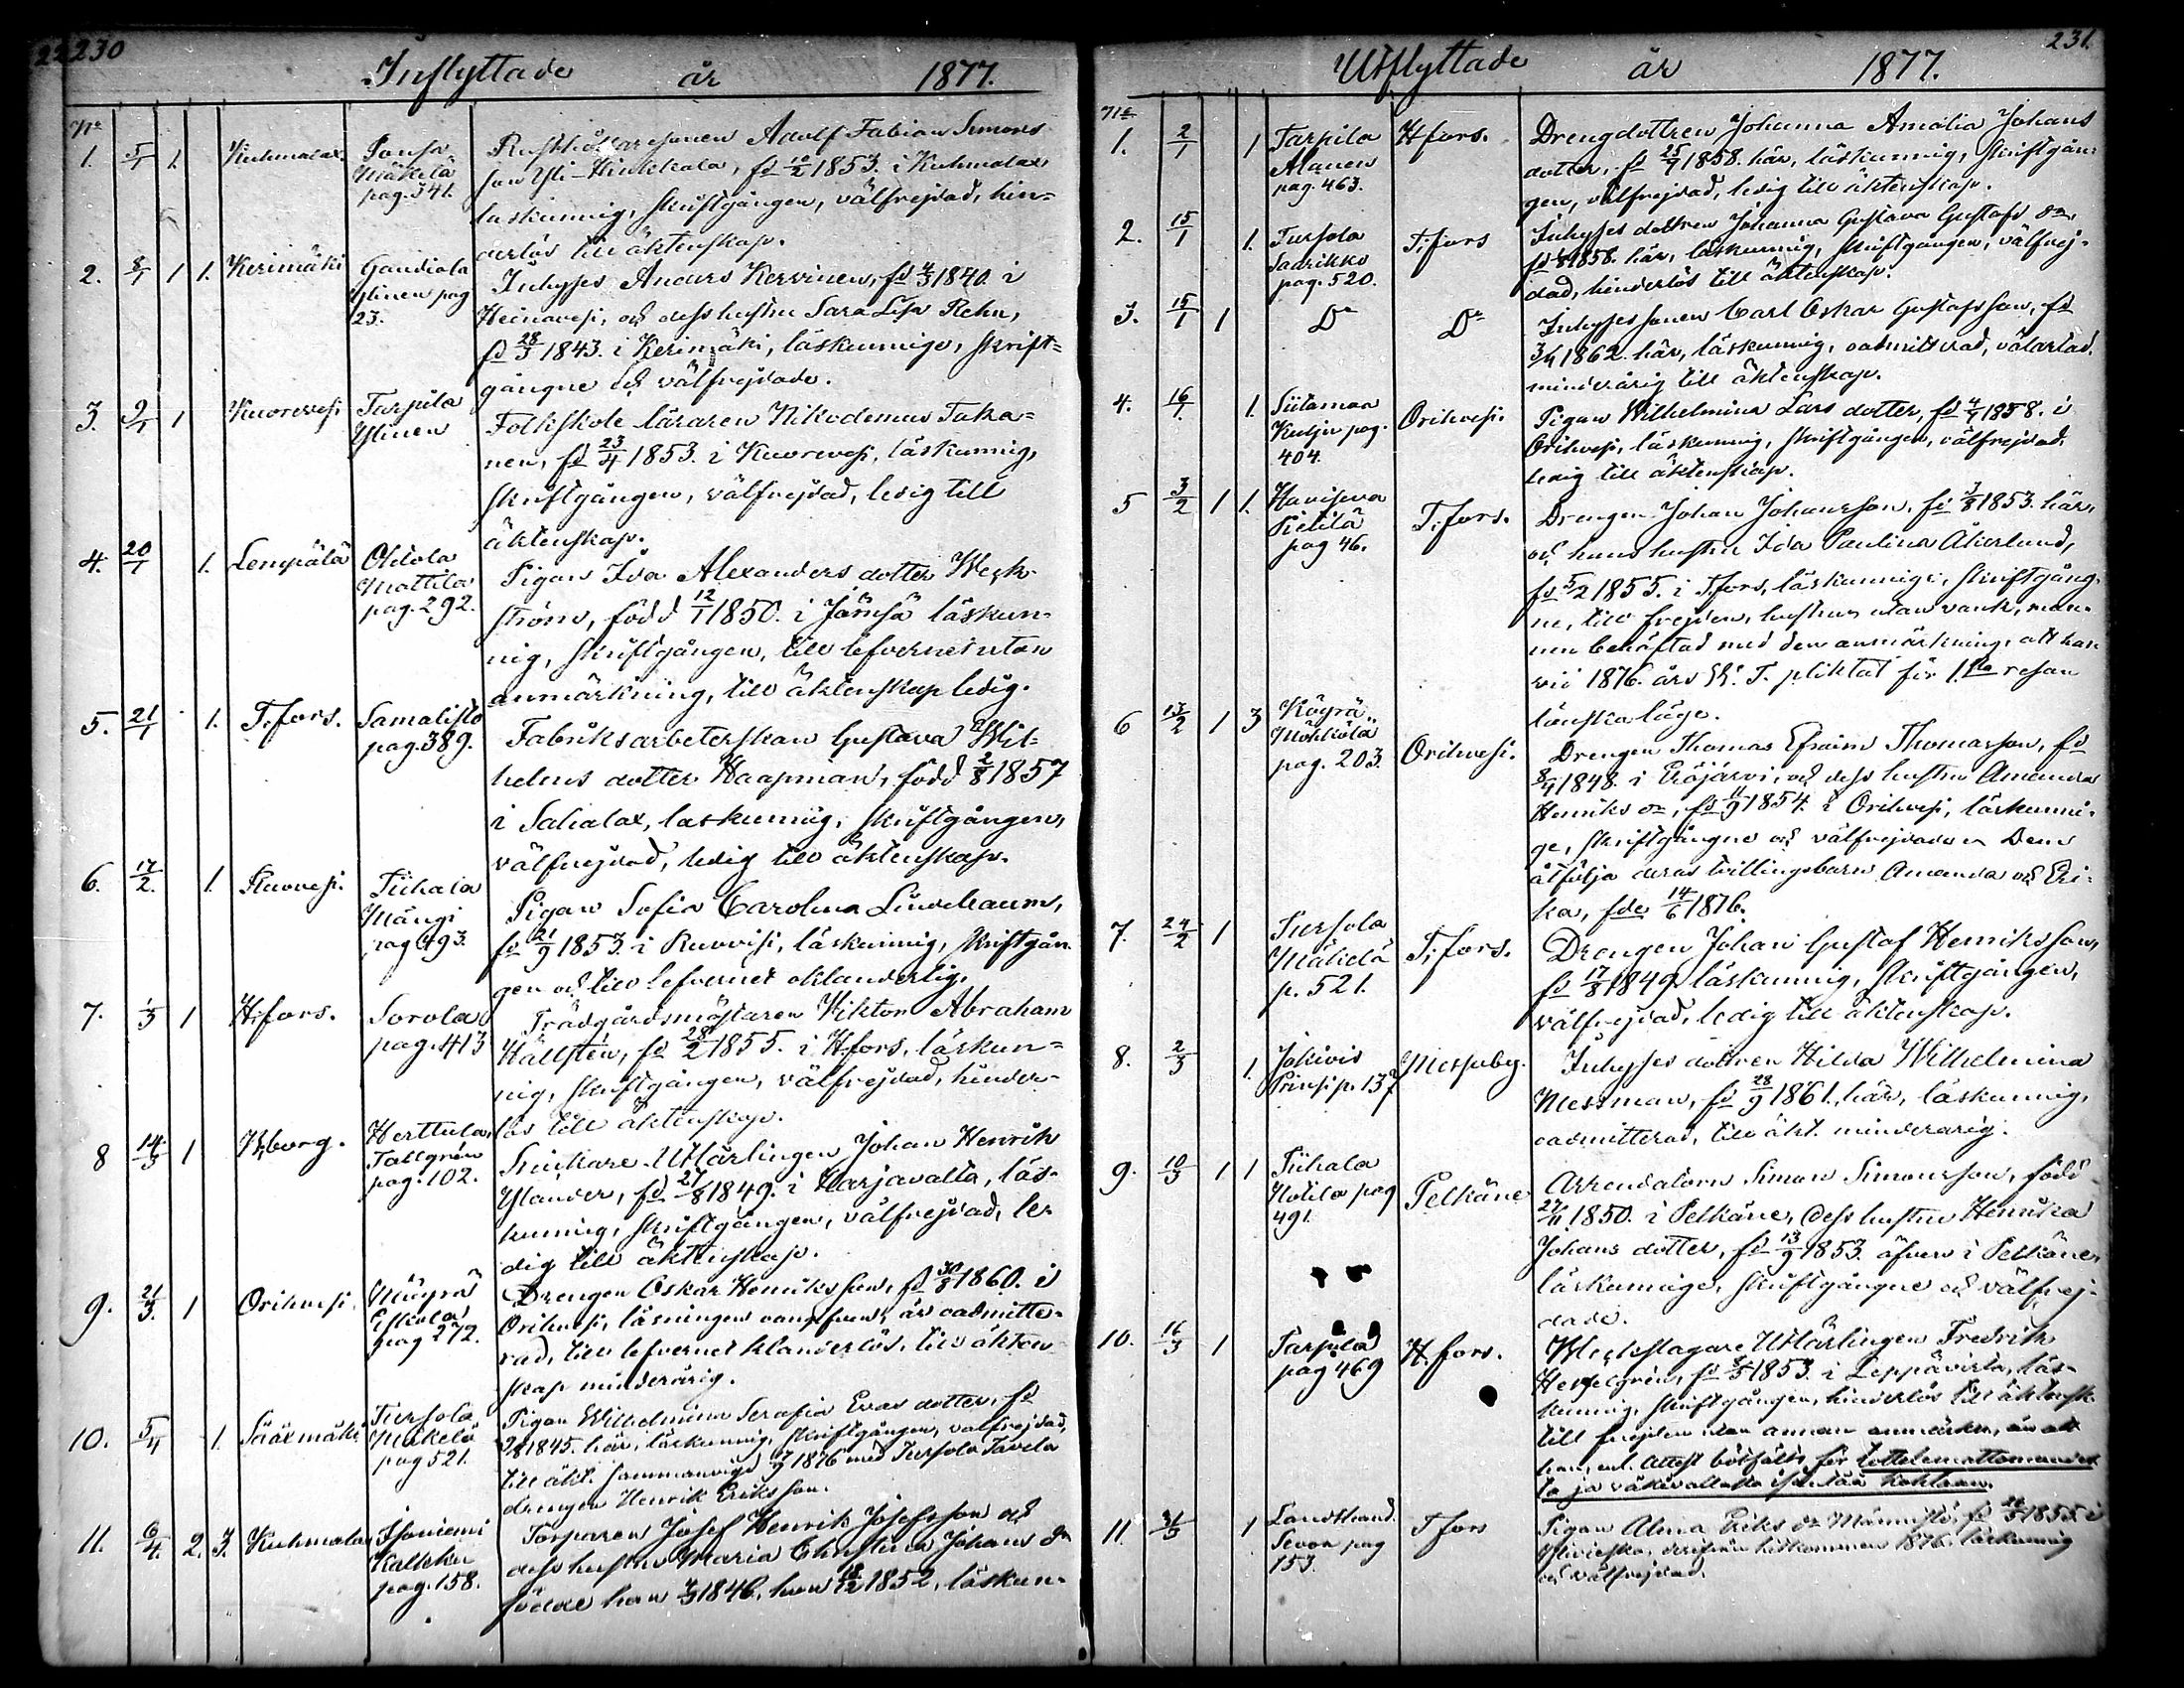 230
Inflyttade år 1877.
No
1. 5/1 1. Kuhmalax Pansa Mäkelä pag. 341.
Rusthållaresonen Adolf Fabian Simons
son Yli-Kiukkala, fd 1853. i Kuhmalax,
läskunnig, skriftgången, välfrejdad, hin=
derlös till äktenskap.
2. 8/1 1 1. Kerimäki Gaudiala Ylinen pag 23.
Inhyses Anders Kervinen, fd 1840. i
Heinävesi, och dess hustru Sara Lisa Rehn,
fd 28/3 1843. i Kerimäki, läskunnige, skrift=
gångne och välfrejdade.
3. 9/1 1 Kuorevesi Tarpila Ylinen
Folkskole läraren Nikodemus Taka=
nen, fd 23/4 1853. i Kuorevesi, läskunnig,
skriftgången, välfrejdad, ledig till
äktenskap.
4. 20/1 1. Lempälä Ohtola Mattila pag. 292.
Pigan Ida Alexanders dotter Weck-
ström, född 12/1 1850. i Jämsä läskun-
nig, skriftgången, till lefvernet utan
anmärkning, till äktenskap ledig.
5. 21/1 1. T:fors. Samalisto pag. 389.
Fabriksarbeterskan Gustava Wil-
helms dotter Haapman, född 2/8 1857
i Sahalax, läskunnig, skriftgången,
välfrejdad, ledig till äktenskap.
6. 17/2. 1. Ruovesi. Tiihala Mängi pag 493.
Pigan Sofia Carolina Lindebaum,
fd 21/9 1853. i Ruovesi, läskunnig, skriftgån-
gen och till lefvernet oklanderlig.
7. 1/3 1 H:fors. Sorola pag. 413
Trädgårdsmästaren Wiktor Abraham
Hällsten, fd 28/2 1855. i H:fors, läskun=
nig, skriftgången, välfrejdad, hinder-
lös till äktenskap.
8 14/3 1 W:borg. Herttula, Tallgrén pag. 102.
Snickare Utlärlingen Johan Henrik
Ylander, fd 27/8 1849. i Harjavalta, läs-
kunnig, skriftgången, välfrejdad, le-
dig till äktenskap.
9. 21/3. 1 Orihvesi. Mäyrä Eskola pag 272.
Drengen Oskar Henriksson, fd 30/8 1860. i
Orihvesi, läsningen, är oadmitte-
rad, till lefvernet klanderlös, till äkten-
skap minderårig.
10. 5/4 1. Sääxmäki Tursola Mäkelä pag 521.
Pigan Wilhelmina Serafia Evas dotter, fd
1845. här, läskunnig, skriftgången, välfrejdad,
till äkt. sammanvigd 1876 med Tursola Tavela
drengen Henrik Eriksson.
11. 6/4. 2. 3. Kuhmalax Isoniemi Kalkku pag. 158.
Torparen Josef Henrik Josefsson och
dess hustru Maria Christina Johans dr
födde han 1846, hon 1852, läskun-
231.
Utflyttade år 1877.
No
1. 2/1 1 Tarpila Alanen pag. 463. H:fors.
Drengdottren Johanna Amalia Johans
dotter, fd 25/9 1858. här, läskunnig, skriftgån-
gen, välfrejdad, ledig till äktenskap.
2. 15/1 1. Tursola Sadrikko pag. 520. T:fors
Inhyses dottren Johanna Gustava Gustafs dr,
fd 1858. här, läskunnig, skriftgången, välfrej-
dad, hinderlös till äktenskap.
3. 15/1 1 Do Do
Inhyses sonen Carl Oskar Gustafsson, fd
3/4 1862. här, läskunnig, oadmitterad, välartad,
minderårig till äktenskap.
4. 16/1. 1. Siitamaa Kulju pag. 404. Orihvesi.
Pigan Wilhelmina Lars dotter, fd 4/9 1858. i
Orihvesi, läskunnig, skriftgången, välfrejdad,
ledig till äktenskap.
5 3/2 1 1. Haviseva Pietilä pag 46. T:fors.
Drengen Johan Johansson, fd 1853. här,
och hans hustru Ida Paulina Åkerlund,
fd 5/2 1855. i T:fors, läskunnige, skriftgång-
ne, till frejden, hustrun utan vank, man-
nen behäftad med den anmärkning, att han
vid 1876. års W. T. pliktat för 1.sta resan
lönskaläge.
6 13/2 1 3 Köyrä Möhkölä pag. 203. Orihvesi.
Drengen Thomas Efraim Thomasson, fd
8/4 1848. i Eräjärvi, och dess hustru Amanda
Henriks dr, fd 11/9 1854. i Orihvesi, läskunni-
ge, skriftgångne och välfrejdade. Dem
åtfölja deras tvillingsbarn Amanda och Eri-
ka, fdde 14/6 1876.
7. 24/2 1 Tursola Mäkelä p. 521. T:fors.
Drengen Johan Gustaf Henriksson,
fd 17/8 1849 läskunnig, skriftgången,
välfrejdad, ledig till äktenskap.
8. 2/3 1. Jokivis Prinsi p. 137 Messuby.
Inhyses dottren Hilda Wilhelmina
Messman, fd 28/9 1861. här, läskunnig,
oadmitterad, till äkt. minderårig.
9. 10/3 1 1 Tiihala Uotila pag 491. Pelkäne
Arrendatorn Simon Simonsson, född
27/11 1850. i Pelkäne, dess hustru Henrika
Johans dotter, fd 13/9 1853. äfven i Pelkäne,
läskunnige, skriftgångne och välfrej-
dade.
10. 16/3 1 Tarpila pag 469 H.fors.
Utlärlingen Fredrik
fd 1853. i Leppävirta, läs-
kunnig, skriftgången, hinderlös till äktensk.
till frejden utan annan anmärkn. än att
han, enl. Attest bötfälts för tottelemattomuudes
ta ja väkivallasta isäntää kohtaan.
11. 31/3 1 Landtband. Sevon pag 153. T fors
Pigan Alma Eriks dr Männistö, fd 1855. i
Ylivieska, derifrån hitkommen 1876. läskunnig
och välfrejdad.